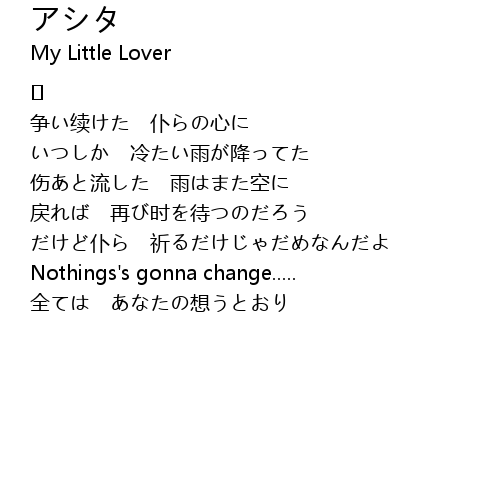 アシタ
My Little Lover
[]
争い续けた　仆らの心に
いつしか　冷たい雨が降ってた
伤あと流した　雨はまた空に
戻れば　再び时を待つのだろう
だけど仆ら　祈るだけじゃだめなんだよ
Nothings's gonna change.....
全ては　あなたの想うとおり